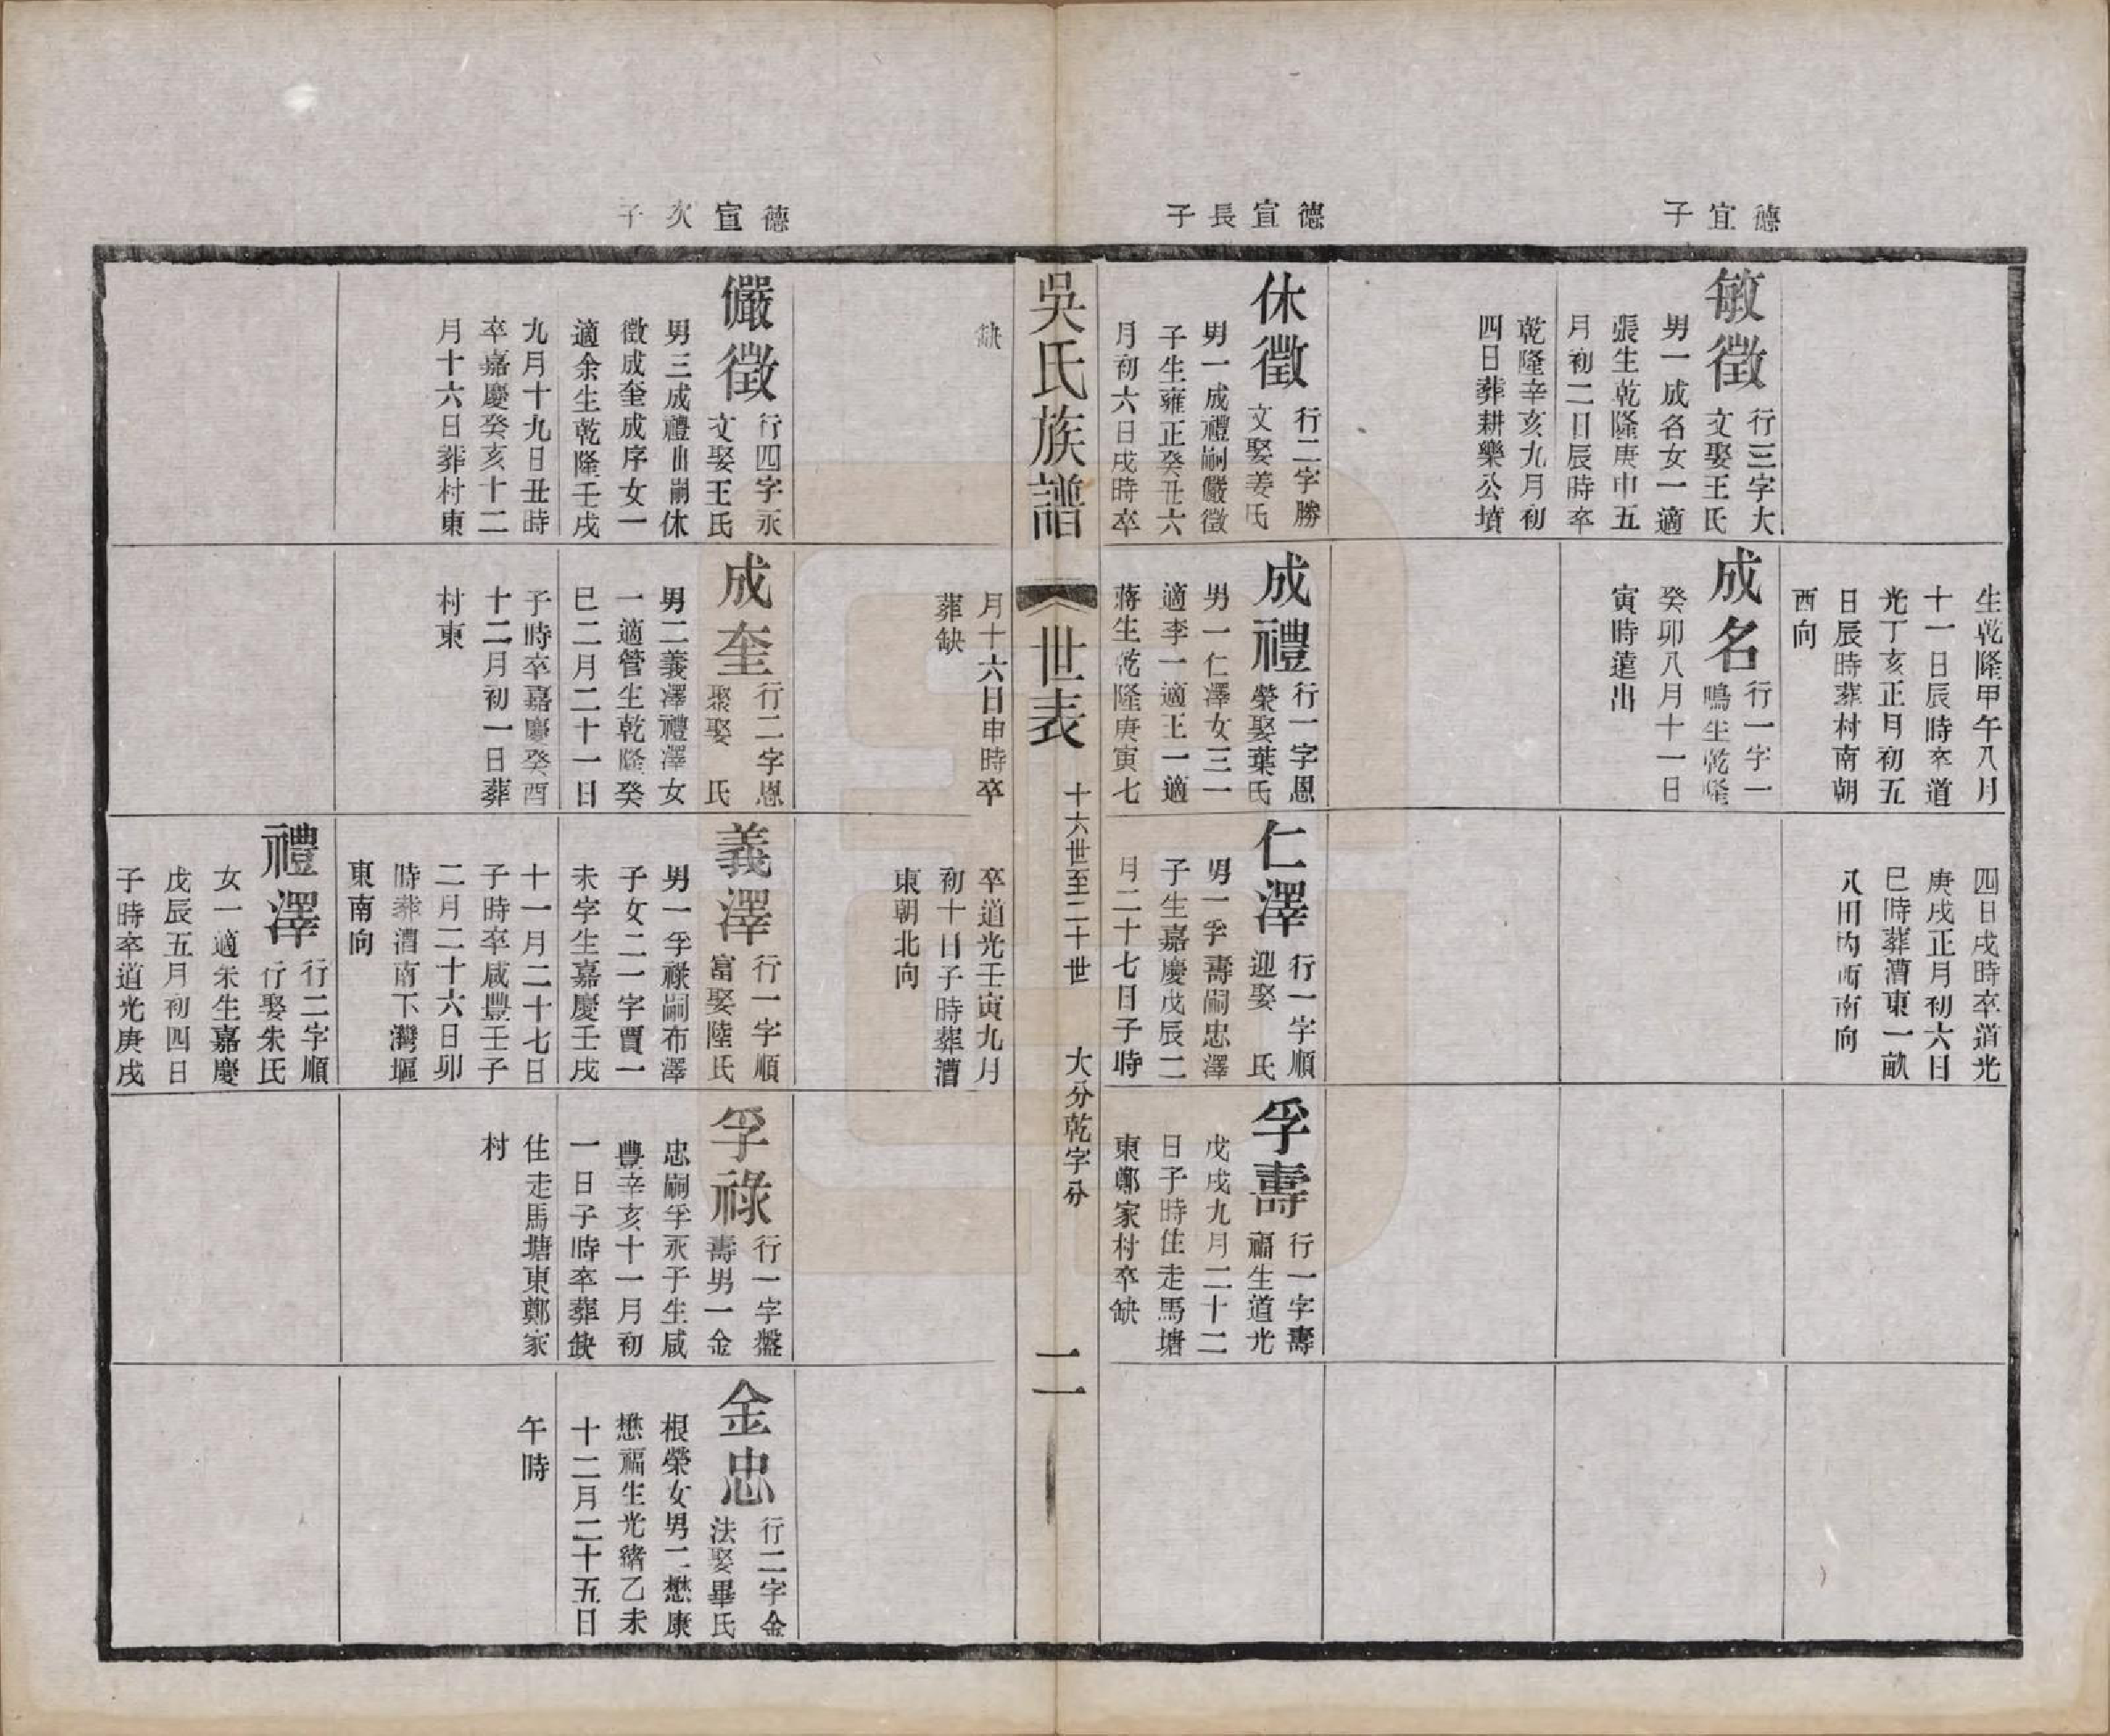 德宜子
德宣長子
德宣次子
生乾隆甲午八月
十一日辰時卒道
光丁亥正月初五
日辰時葬村南朝
西向
四日戌時卒道光
庚戌正月初六日
巳時葬漕東一畝
八田内西南向
敏徵
行三字大
文娶王氏
男一成名女一適
張生乾隆庚申五
月初二日辰時卒
乾隆辛亥九月初
四日葬耕樂公墳
成名
行一字一
鳴生乾隆
癸卯八月十一日
寅時遠出
休徵
行二字勝
文娶姜氏
男一成禮嗣儼徵
子生雍正癸丑六
月初六日戌時卒
成禮
行一字恩
榮娶葉氏
男一仁澤女三一
適李一適王一適
蔣生乾隆庚寅七
仁澤
行一字順
迎娶　氏
男一孚壽嗣忠澤
子生嘉慶戊辰二
月二十七日子時
孚壽
行一字壽
福生道光
戊戌九月二十二
日子時住走馬塘
東鄭家村卒缺
吳氏族譜
世表
十六世至二十世
大分乾字分
二
缺
月十六日申時卒
葬缺
卒道光壬寅九月
初十日子時葬漕
東朝北向
儼徵
行四字永
文娶王氏
男三成禮出嗣休
徵成奎成序女一
適余生乾隆壬戌
九月十九日丑時
卒嘉慶癸亥十二
月十六日葬村東
成奎
行二字恩
聚娶　氏
男二義澤禮澤女
一適管生乾隆癸
巳二月二十一日
子時卒嘉慶癸酉
十二月初一日葬
村東
義澤
行一字順
富娶陸氏
男一孚祿嗣布澤
子女二一字賈一
未字生嘉慶壬戌
十一月二十七日
子時卒咸豐壬子
二月二十六日卯
時葬漕南下灣堰
東南向
禮澤
行二字順
行娶朱氏
女一適朱生嘉慶
戊辰五月初四日
子時卒道光庚戌
孚祿
行一字盤
壽男一金
忠嗣孚永子生咸
豐辛亥十一月初
一日子時卒葬缺
住走馬塘東鄭家
村
金忠
行二字金
法娶畢氏
根榮女男二懋康
懋福生光緒乙未
十二月二十五日
午時